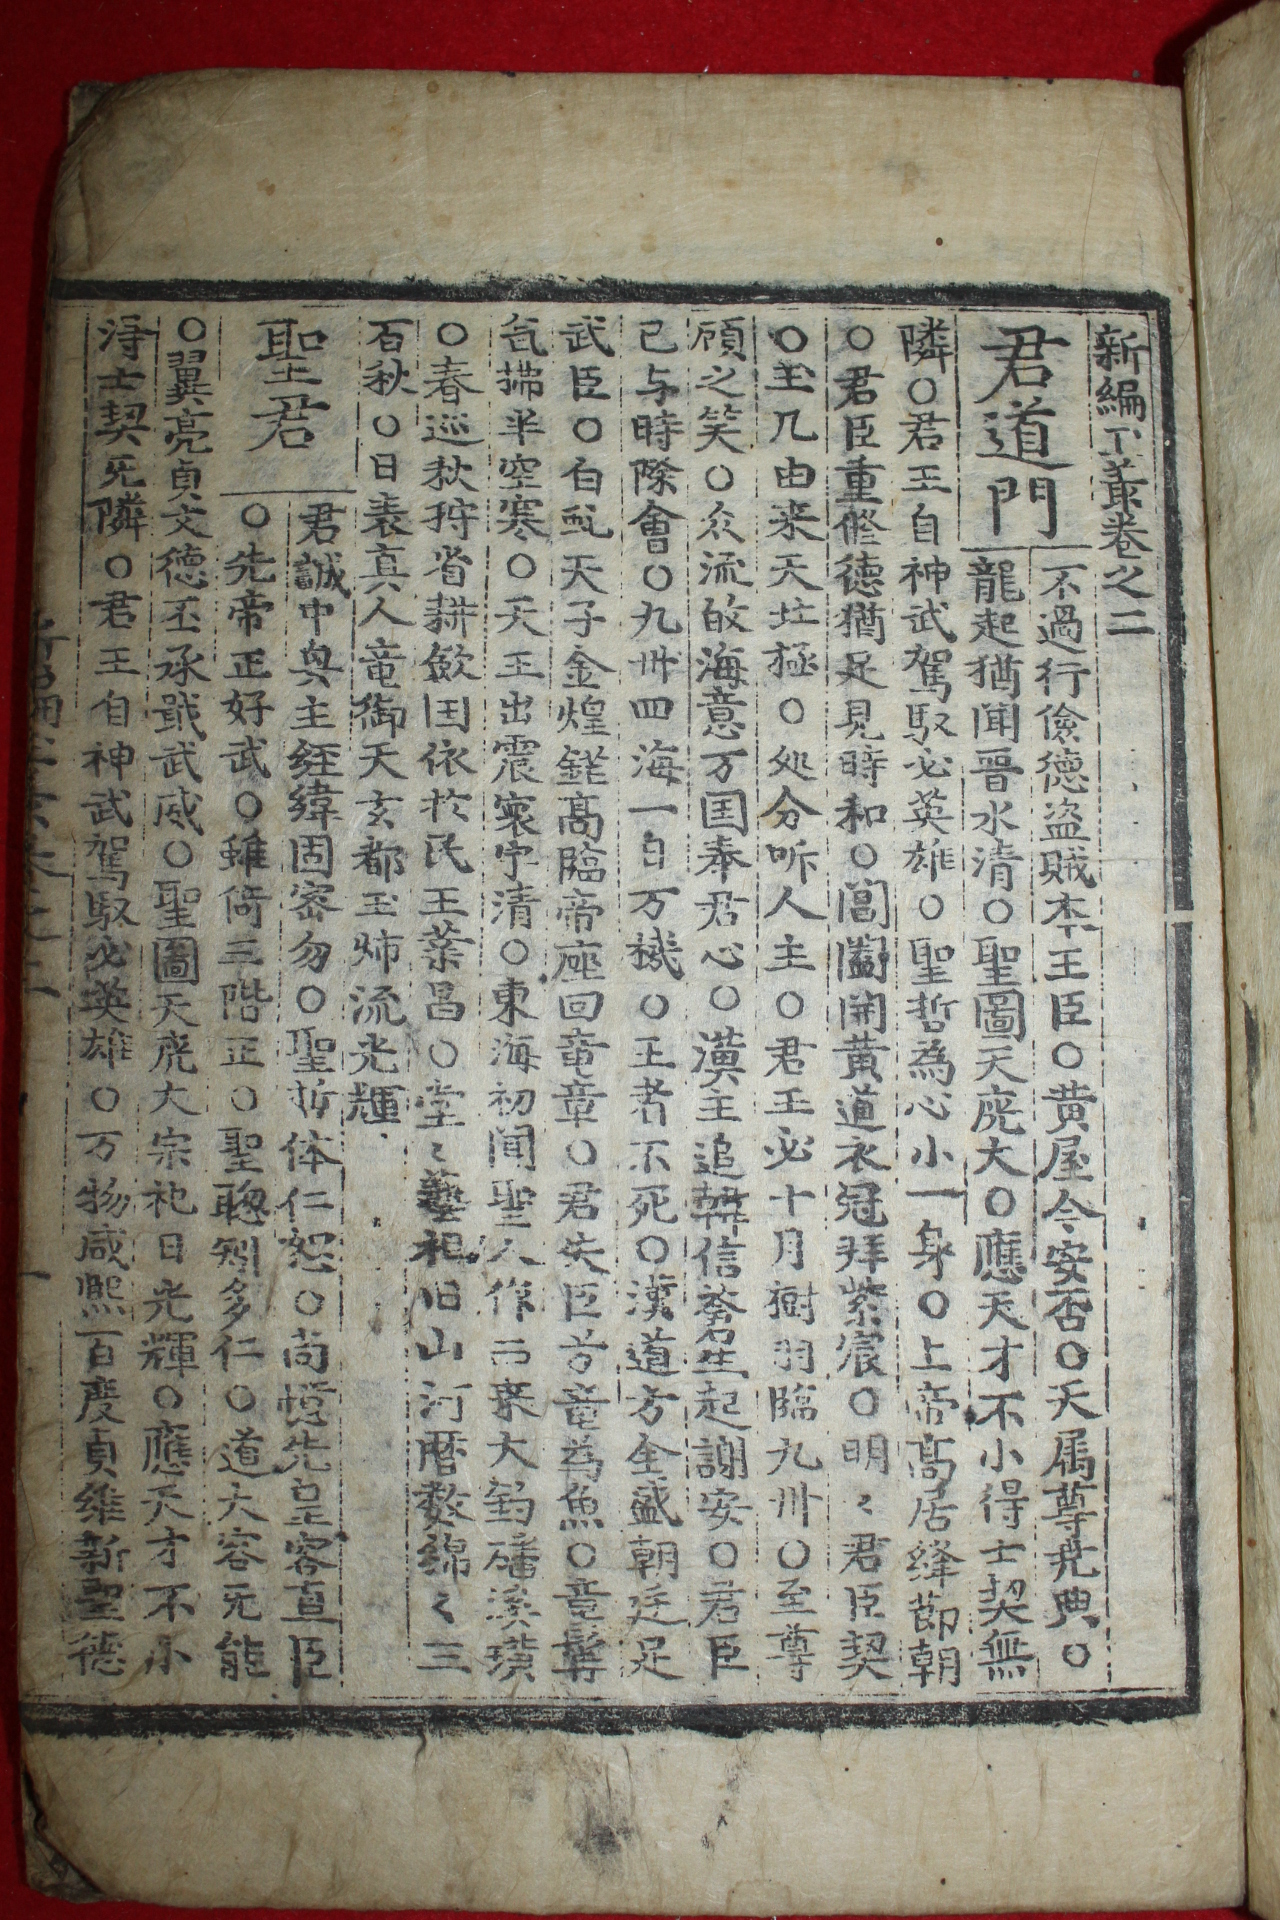 新編叢卷之二
君道門
不過行儉德盜賊本王臣○黄屋今安否○天属尊尭典○
龍起猶聞晋水清○聖圖天廣大○應天才不小得士契無
隣○君王自神武駕馭必英雄○聖哲為心小一身○上帝高居絳節朝
○君臣重修德猶足見時和○閶闔開黄道衣冠拜紫宸○明〻君臣契
○玉几由来天北極○処分听人主○君王必十月樹羽臨九州○至尊
顧之笑○众流敀海意万国奉君心○漢主追韓信蒼生起謝安○君臣
已与時際會○九州四海一日万機○王者不死○漢道方全盛朝廷足
武臣○白䰟天子金煌錐高臨帝座回竜章○君失臣兮竜為魚○竜髯
気拂半空寒○天王出震寰宇清○東海初聞聖人作而来大釣磻溪璜
○春巡秋狩省耕歛国依於民王業昌○堂〻藝祖旧山河曆数綿〻三
百秋○日表真人竜御天玄都玉 流光輝
聖君
君誠中興主経緯固密勿○聖哲体仁恕○尚想先皇容直臣
○先帝正好武○雖倚三階正○聖聰矧多仁○道大容旡能
○翼亮貞文德丕承戢武威○聖圖天廣大宗祀日光輝○應天才不小
淂士契旡隣○君王自神武駕馭必英雄○万物咸熙百度貞維新聖德